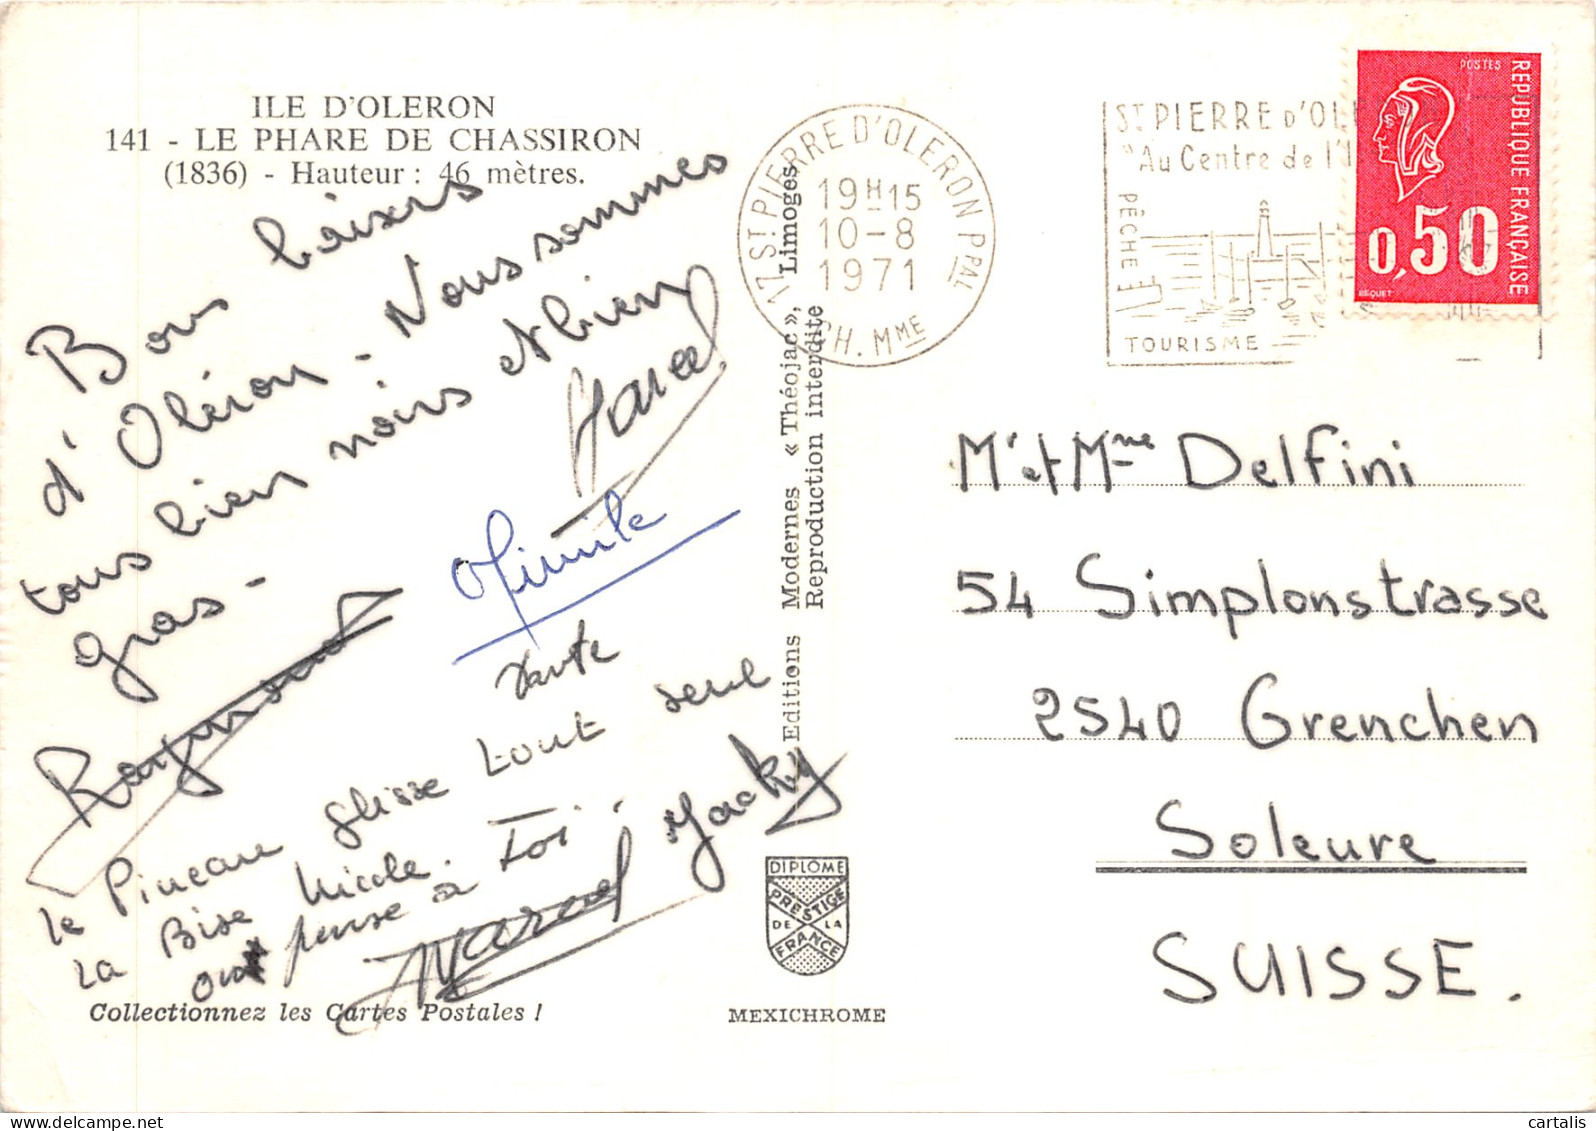 ILE D'OLERON
141 - LE PHARE DE CHASSIRON
(1836) - Hauteur : 46 mètres.
Bons baisers
d'Oléron - Nous sommes
tous bien noirs et bien
gras -
Marcel
Mimile
Raymond
tante
le Pineau glisse tout seul
la Bise Nicole.
on pense à toi.
Jacky
Marcel
Collectionnez les Cartes Postales !
Editions Modernes « Théojac », Limoges
Reproduction interdite
DIPLOME
PRESTIGE
DE LA
FRANCE
MEXICHROME
17 ST PIERRE D'OLERON PPAL
19H15
10-8
1971
CH. MME
ST PIERRE D'OLE
"Au Centre de l'I
PÊCHE
TOURISME
POSTES
REPUBLIQUE FRANÇAISE
0,50
BEQUET
Mr et Mme Delfini
54 Simplonstrasse
2540 Grenchen
Soleure
SUISSE.
delcampe.net
cartalis